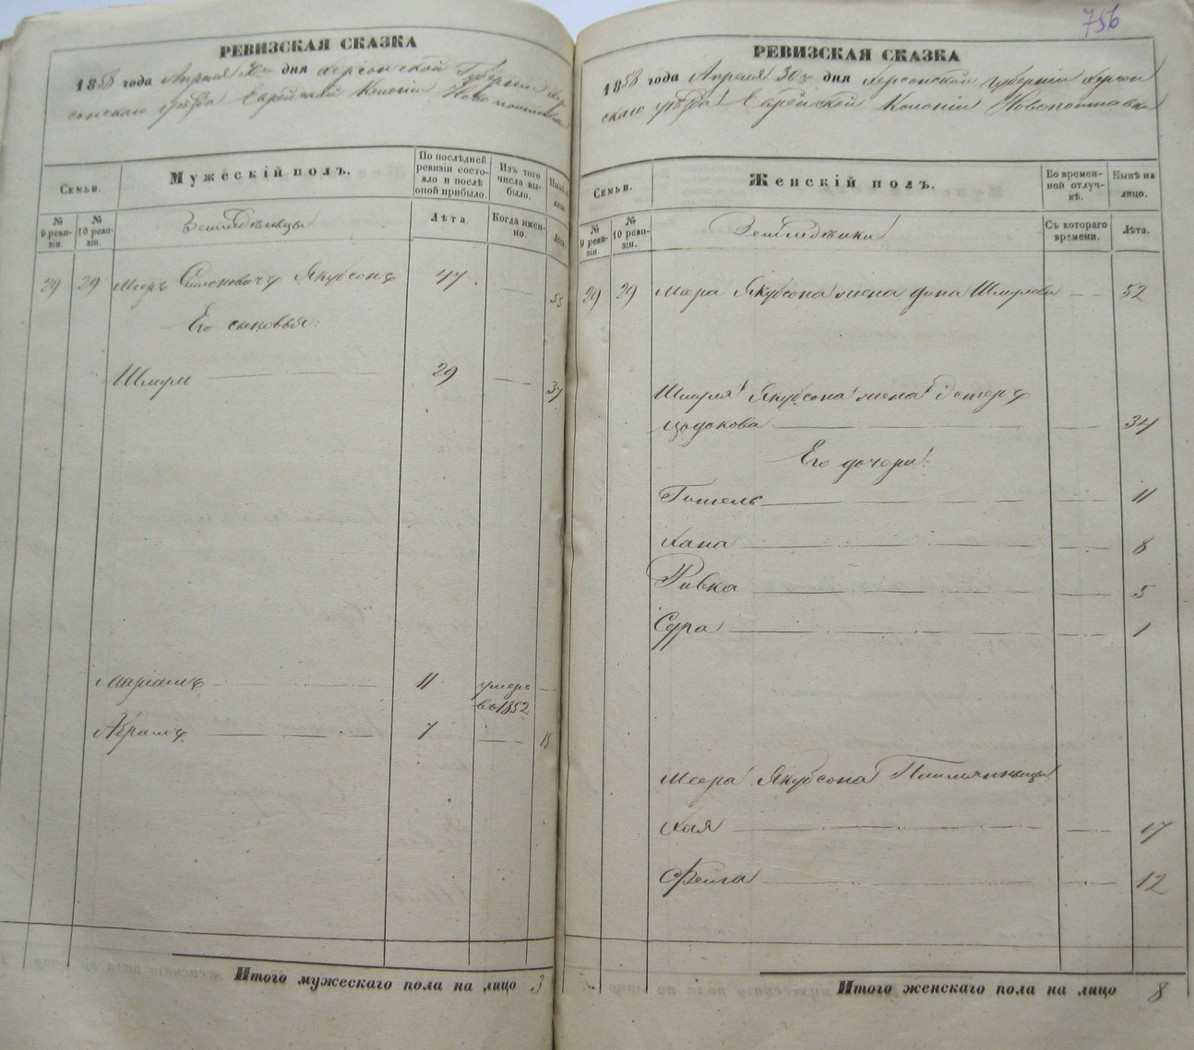 756
РЕВИЗСКАЯ СКАЗКА
1858 года Апреля 30го дня Херсонской Губерніи Хер
сонскаго уѣзда Еврейской Колоніи Новополтавка
Семьи.
Мужескій полъ.
По послѣдней ревизіи состояло и послѣ оной прибыло.
Изъ того числа выбыло.
Нынѣ на лицо.
№ 9 ревизіи.
№ 10 ревизіи.
Земледѣльцы
Лѣта.
Когда именно.
Лѣта.
29 29 Меер Симоновичъ Якубсонъ 47 55
Его сыновья:
Шмуль 29 37
11 умеръ
въ 1852
Абрамъ 7 15
Итого мужескаго пола на лицо 3
РЕВИЗСКАЯ СКАЗКА
1858 года Апреля 30го дня Херсонской губерніи Херсон
скаго уѣзда Еврейской Колоніи Новополтавка
Семьи.
Женскій полъ.
Во временной отлучкѣ.
Нынѣ на лицо.
№ 9 ревизіи.
№ 10 ревизіи.
Земледѣлки
Съ котораго времени.
Лѣта.
29 29 Меера Якубсона жена Фина Шмулева 52
Шмуля Якубсона жена Естеръ
Цодокова 34
Его дочери:
11
Хана 8
Ривка 5
Сура 1
Меера Якубсона Племянницы
Хая 17
Фейга 12
Итого женскаго пола на лицо 8